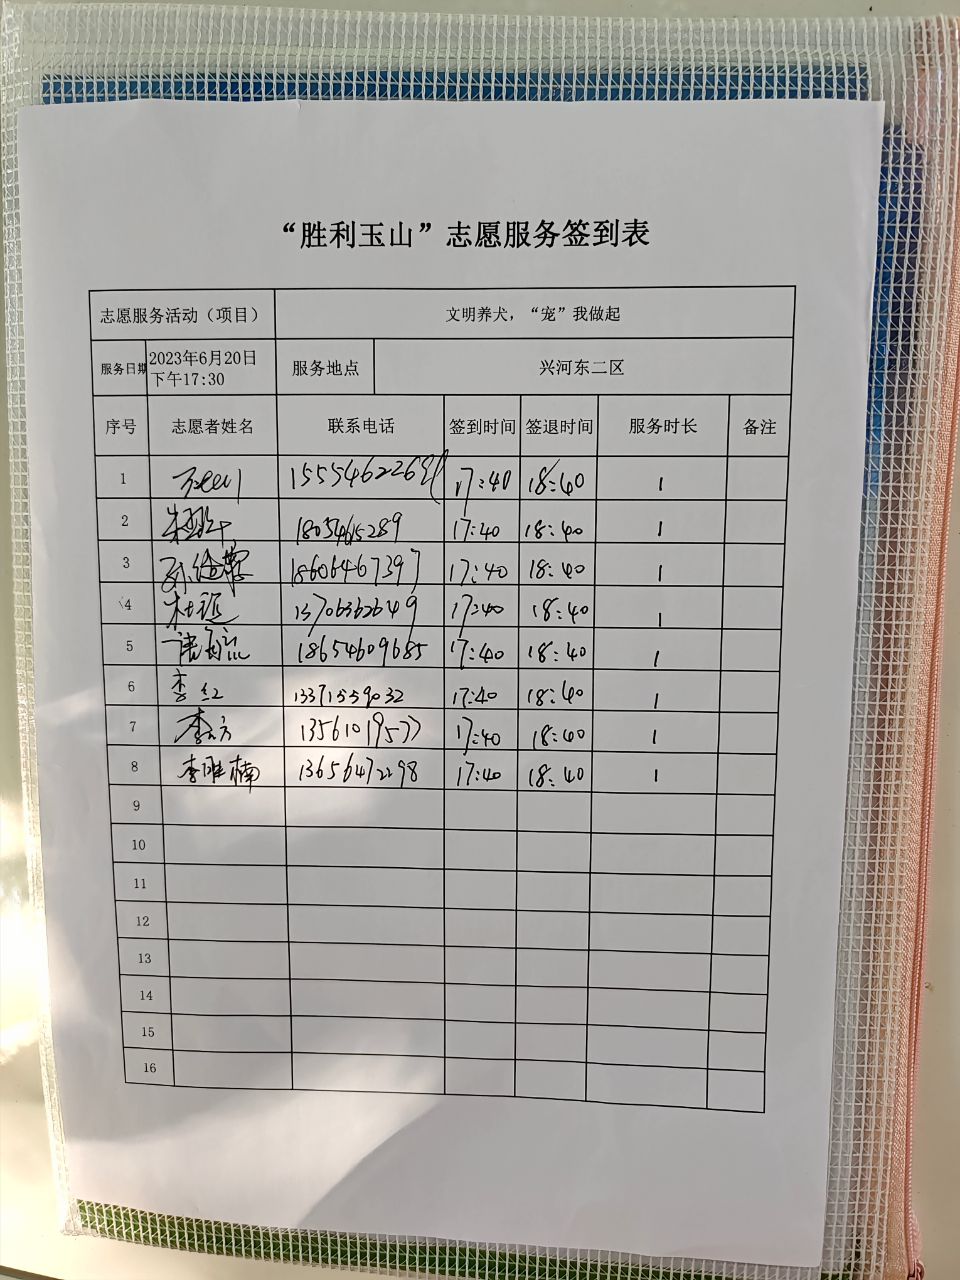 “胜利玉山”志愿服务签到表
志愿服务活动（项目） 文明养犬，“宠”我做起
服务日期 2023年6月20日 下午17:30 服务地点 兴河东二区
序号 志愿者姓名 联系电话 签到时间 签退时间 服务时长 备注
1 17:40 18:40 1
2 18054615289 17:40 18:40 1
3 18606467397 17:40 18:40 1
4 杜 13706362649 17:40 18:40 1
5 18654609685 17:40 18:40 1
6 李红 13371559032 17:40 18:40 1
7 李方 13561019577 17:40 18:40 1
8 李唯楠 13656472298 17:40 18:40 1
9
10
11
12
13
14
15
16